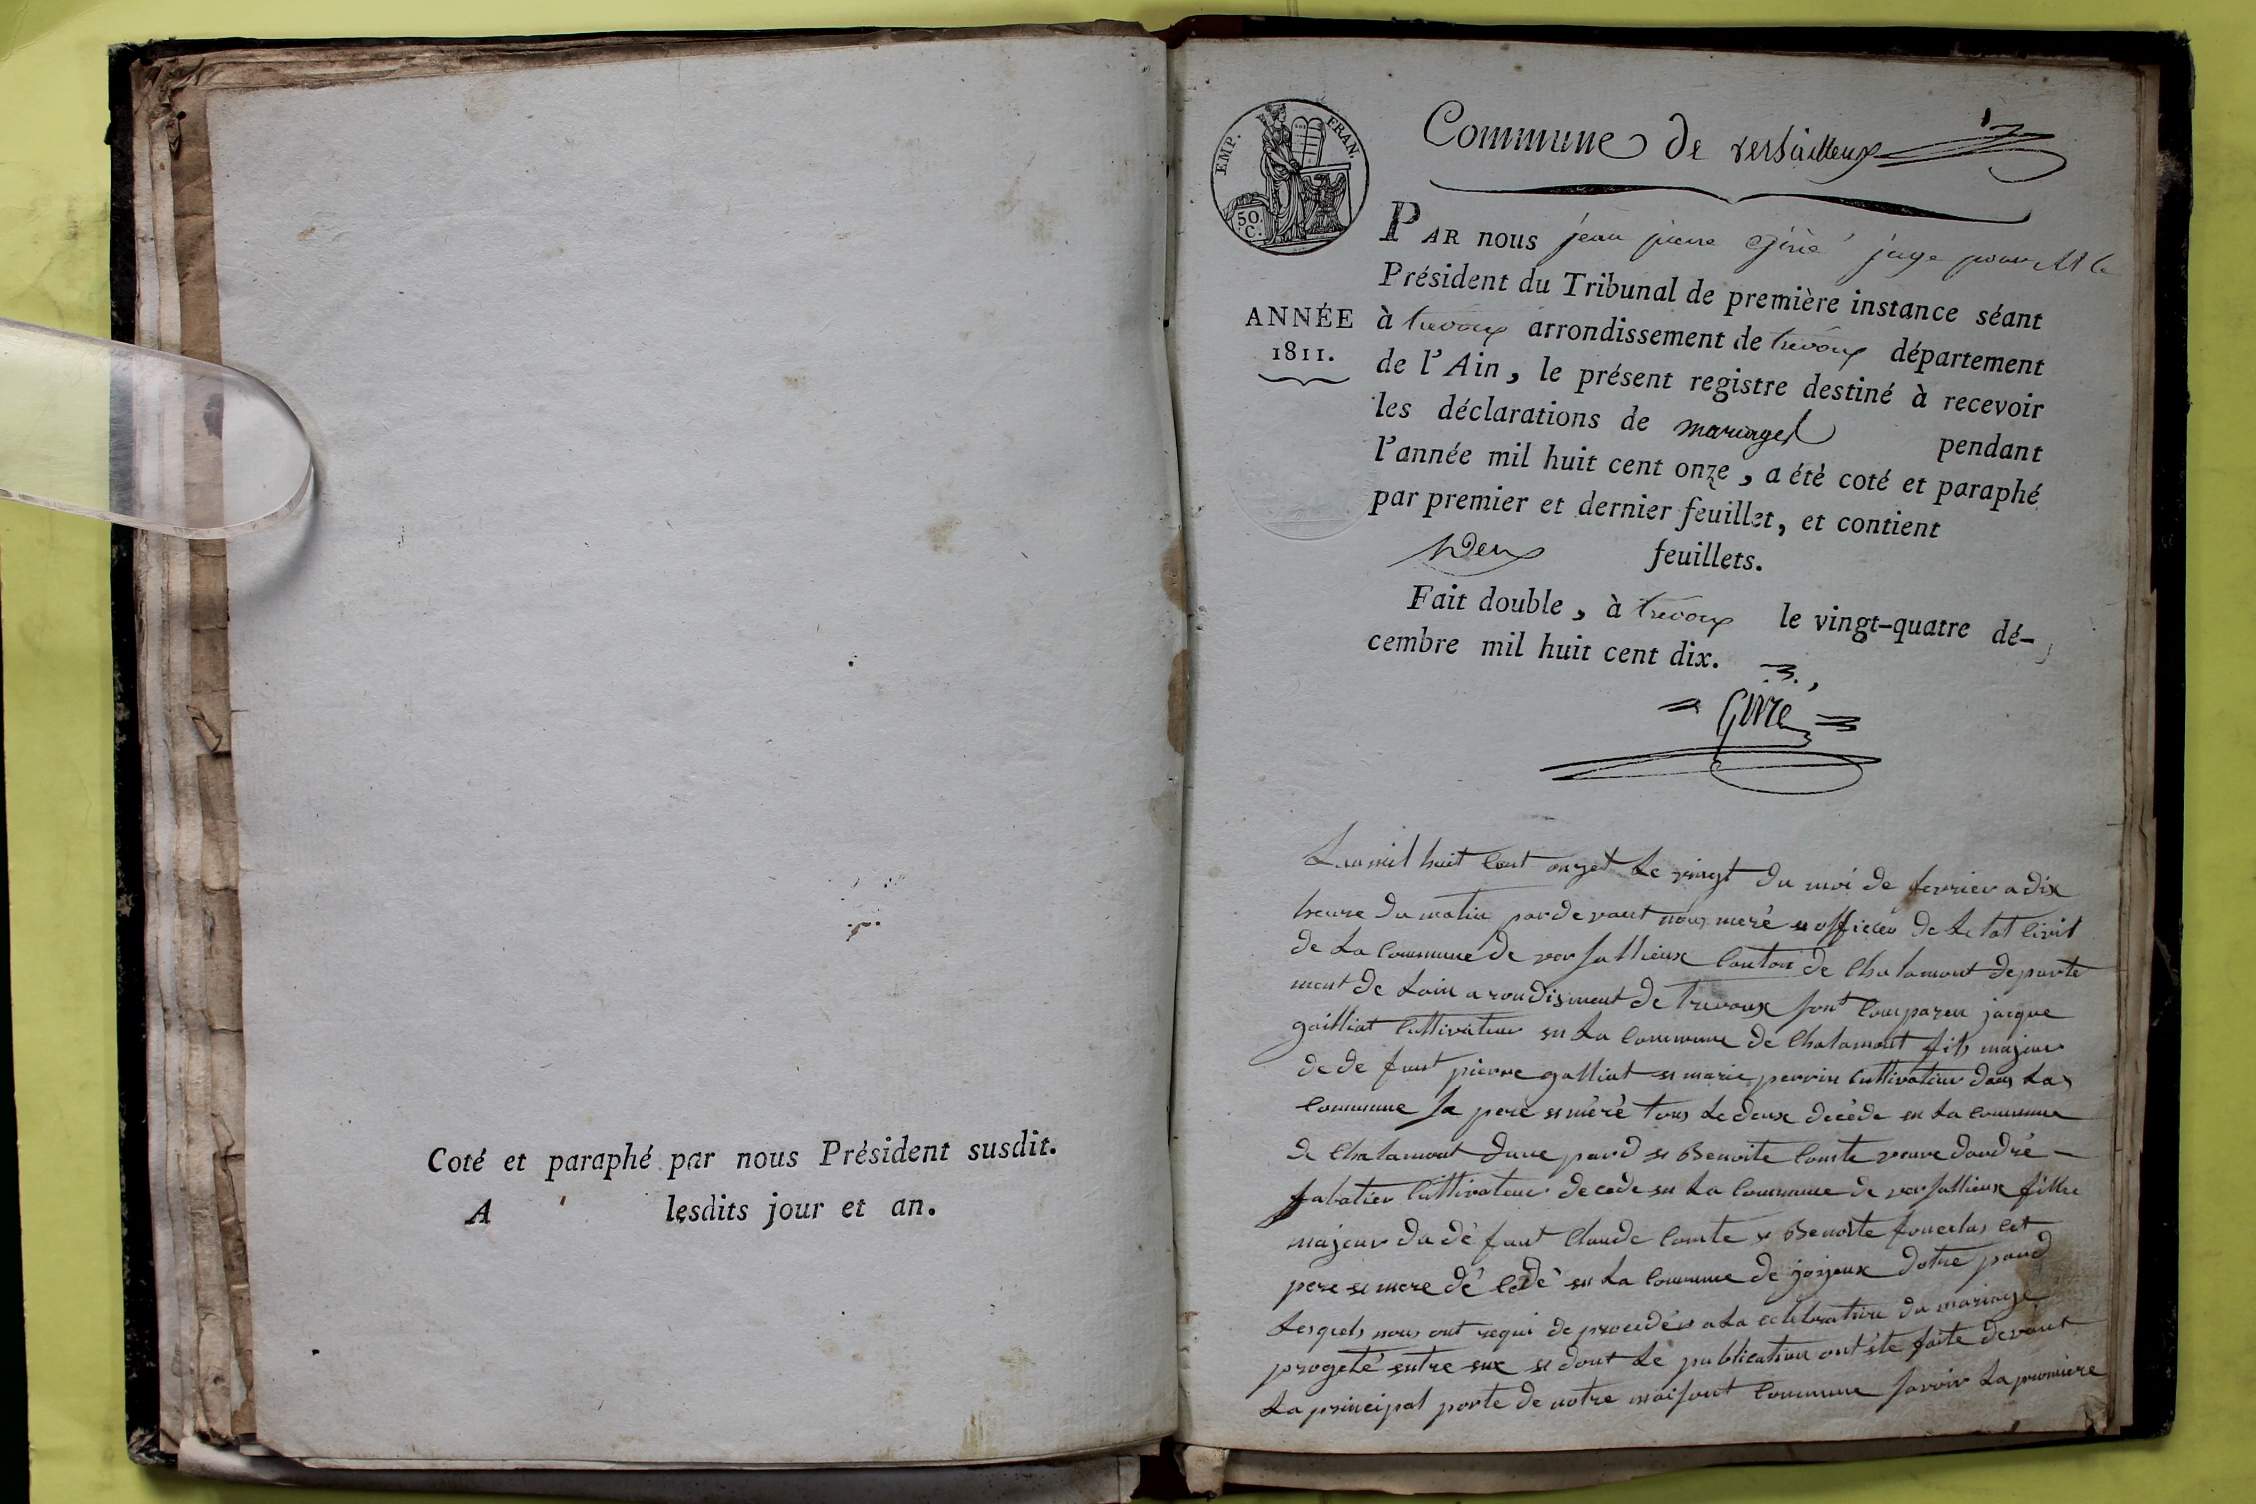 Coté et paraphé par nous Président susdit.
A lesdits jour et an.
EMP. FRAN.
50 C.
Commune de versailleux
ANNÉE
1811.
PAR nous jean pierre Girié juge pour M le
Président du Tribunal de première instance séant
à trevoux arrondissement de trevoux département
de l'Ain, le présent registre destiné à recevoir
les déclarations de mariages pendant
l'année mil huit cent onze, a été coté et paraphé
par premier et dernier feuillet, et contient
Deux feuillets.
Fait double, à trevoux le vingt-quatre dé-
cembre mil huit cent dix.
Girié
Lan mil huit cent onzet Le vingt du moi de fevrier a dix
heure du matin par de vant nous meré et officier de Le tat Civil
de La Commune de versallieux Canton de Chalamont departe
ment de Lain arondisment de Trevoux sont Compareu jacque
gailliat Cultivateur en La Commune de Chalamont fils majeur
de de funt pierre galliat et marie perrin Cultivateur dans La
Commune sa pere et meré tous Le deux decéde en La commune
de Chalamont dune pard et Benoite Comte veuve dandré
sabatier Cultivateur decede en La Commune de versallieux fillie
majeur du dé funt Claude Comte et Benoite
pere et mere dé cedé en La Commune de joyeux dotre pard
Lesquels nous ont requi de proceder a La celebration du mariage
progeté entre eux et dont Le publication ont éte faite devant
La principal porte de notre maisont Commune savoir La premiere